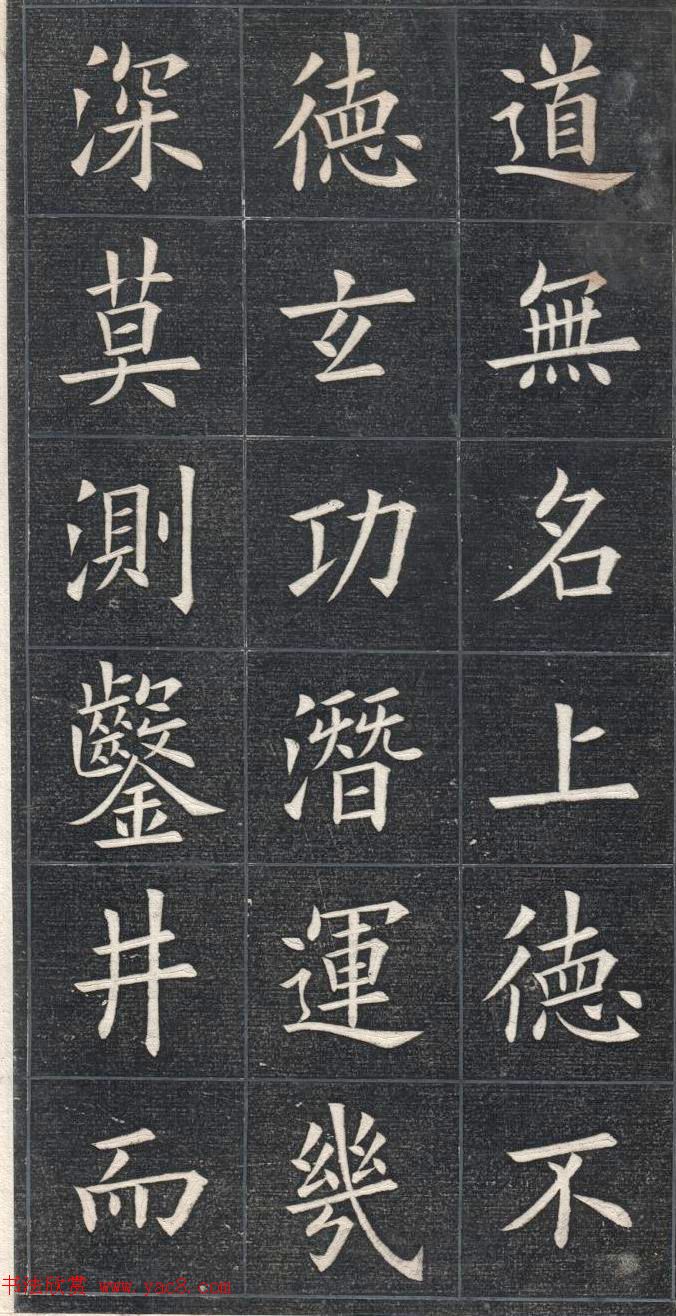 道無名上德不
德玄功潛運幾
深莫測鑿井而
书法欣赏 www.yac8.com